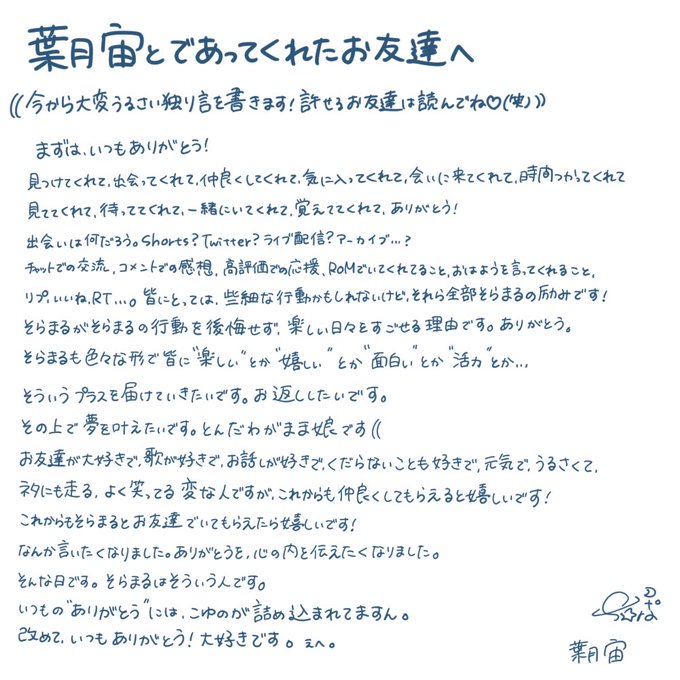 葉月宙とであってくれたお友達へ
((今から大変うるさい独り言を書きます!許せるお友達は読んでね♡(笑)))
まずは、いつもありがとう!
見つけてくれて、出会ってくれて、仲良くしてくれて、気に入ってくれて、会いに来てくれて、時間つかってくれて
見ててくれて、待っててくれて、一緒にいてくれて、覚えててくれて、ありがとう!
出会いは何だろう。Shorts?Twitter?ライブ配信?アーカイブ…?
チャットでの交流、コメントでの感想、高評価での応援、ROMでいてくれてること、おはようを言ってくれること、
リプ、いいね、RT…。皆にとっては、些細な行動かもしれないけど、それら全部そらまるの励みです!
そらまるがそらまるの行動を後悔せず、楽しい日々をすごせる理由です。ありがとう。
そらまるも色々な形で皆に"楽しい"とか"嬉しい"とか"面白い"とか"活力"とか…
そういうプラスを届けていきたいです。お返ししたいです。
その上で夢を叶えたいです。とんだわがまま娘です((
お友達が大好きで、歌が好きで、お話しが好きで、くだらないことも好きで、元気で、うるさくて、
ネタにも走る、よく笑ってる変な人ですが、これからも仲良くしてもらえると嬉しいです!
これからもそらまるとお友達でいてもらえたら嬉しいです!
なんか言いたくなりました。ありがとうを、心の内を伝えたくなりました。
そんな日です。そらまるはそういう人です。
いつもの"ありがとう"には、こゆのが詰め込まれてますん。
改めて、いつもありがとう!大好きです。えへ。
葉月宙